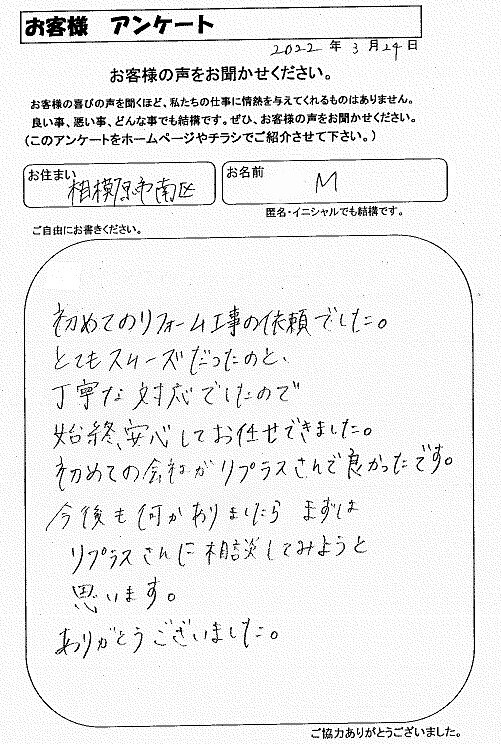 お客様 アンケート
2022 年 3 月 24 日
お客様の声をお聞かせください。
お客様の喜びの声を聞くほど、私たちの仕事に情熱を与えてくれるものはありません。
良い事、悪い事、どんな事でも結構です。ぜひ、お客様の声をお聞かせください。
(このアンケートをホームページやチラシでご紹介させて下さい。)
お住まい 相模原市南区
お名前 M
匿名・イニシャルでも結構です。
ご自由にお書きください。
初めてのリフォーム工事の依頼でした。
とてもスムーズだったのと、
丁寧な対応でしたので
始終、安心してお任せできました。
初めての会社がリプラスさんで良かったです。
今後も何かありましたら まずは
リプラスさんに相談してみようと
思います。
ありがとうございました。
ご協力ありがとうございました。